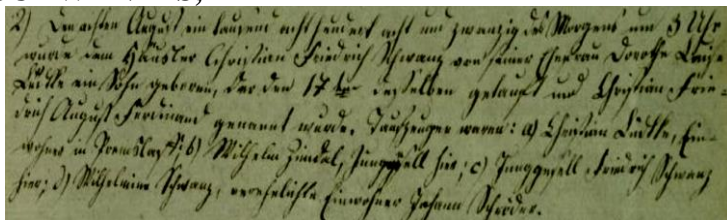 2) Den achten August ein tausend acht hundert acht und zwanzig des Morgens um 3 Uhr
wurde dem Häusler Christian Friedrich Schwanz von seiner Ehefrau Dorothe Louise
Lüdtke ein Sohn geboren, der den 17 ten desselben getauft und Christian Frie-
drich August Ferdinand genannt wurde. Taufzeugen waren: a) Christian Lüdtke, Ein-
wohner in Premslaff; b) Wilhelm Zindal, Junggesell hier; c) Junggesell Friedrich Schwanz
hier; d) Wilhelmine Schwanz, verehelichte Einwohner Johann Schröder.